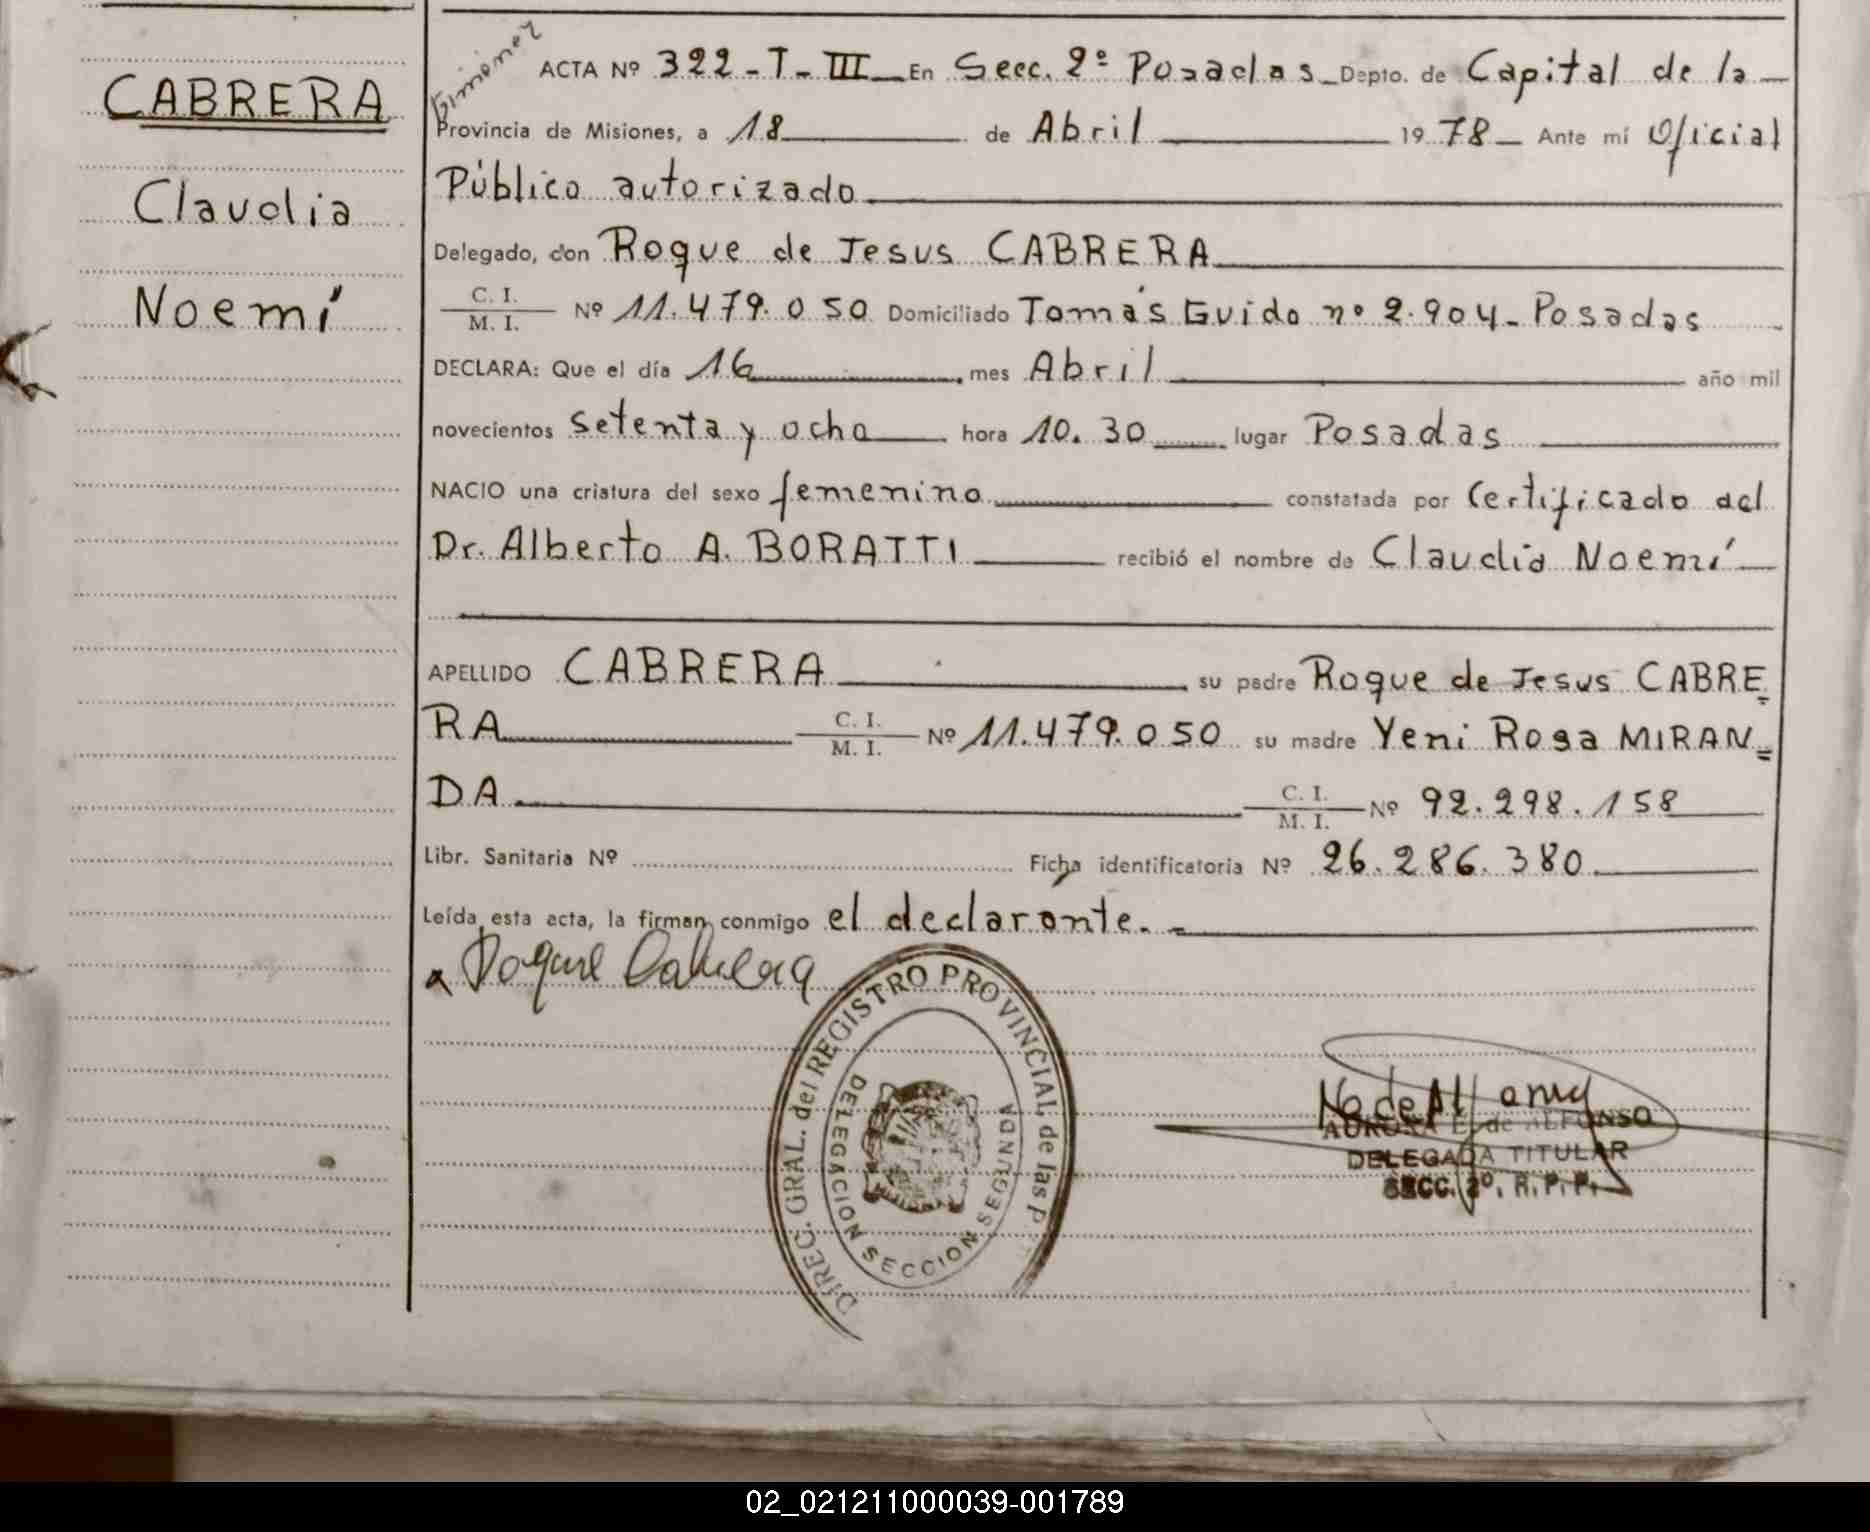 CABRERA
Claudia
Noemí
Giménez
ACTA Nº 322-T-III En Secc. 2º Posadas Depto. de Capital de la
Provincia de Misiones, a 18 de Abril 1978 Ante mí Oficial
Público autorizado
Delegado, don Roque de Jesus CABRERA
C. I.
M. I. Nº 11.479.050 Domiciliado Tomás Guido nº 2.904- Posadas
DECLARA: Que el día 16 mes Abril año mil
novecientos setenta y ocho hora 10.30 lugar Posadas
NACIO una criatura del sexo femenino constatada por Certificado del
Dr. Alberto A. BORATTI recibió el nombre de Claudia Noemí
APELLIDO CABRERA su padre Roque de Jesus CABRE=
RA C. I. M. I. Nº 11.479.050 su madre Yeni Rosa MIRAN=
DA C. I. M. I. Nº 92.298.158
Libr. Sanitaria Nº Ficha identificatoria Nº 26.286.380
Leída esta acta, la firman conmigo el declarante.-
Roque Cabrera
DIREC. GRAL. del REGISTRO PROVINCIAL de las P
DELEGACION SECCION SEGUNDA
AURORA E. de ALFONSO
DELEGADA TITULAR
SECC. 2º. R.P.P.
02_021211000039-001789